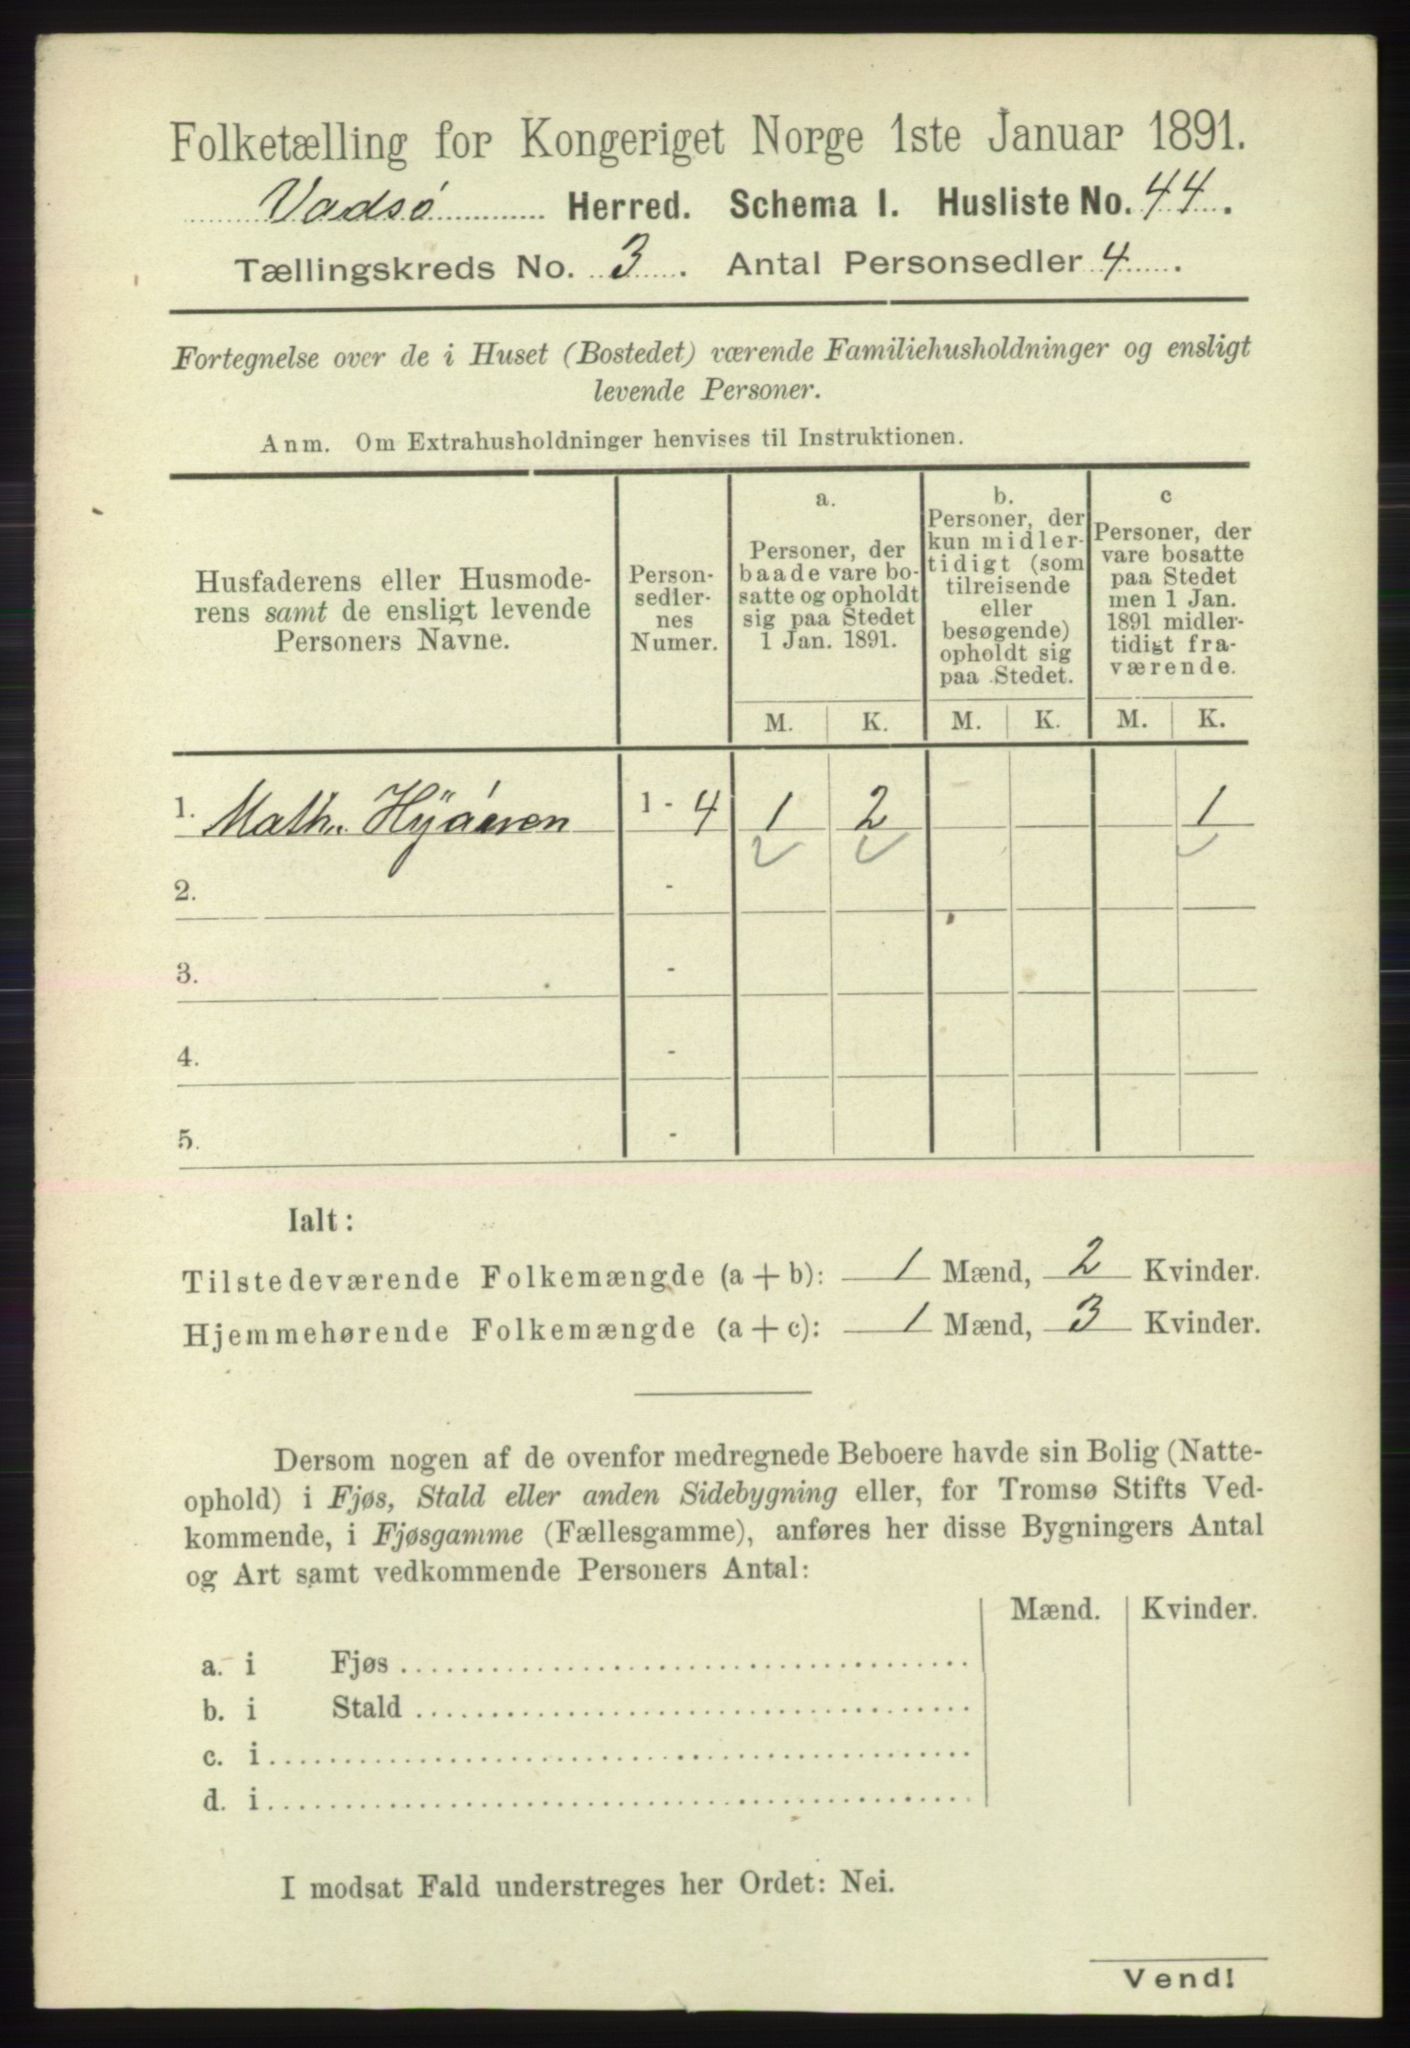 Folketælling for Kongeriget Norge 1ste Januar 1891.
Vadsø Herred. Schema I. Husliste No. 44.
Tællingskreds No. 3. Antal Personsedler 4.
Fortegnelse over de i Huset (Bostedet) værende Familiehusholdninger og ensligt
levende Personer.
Anm. Om Extrahusholdninger henvises til Instruktionen.
Husfaderens eller Husmode-
rens samt de ensligt levende
Personers Navne.
Person-
sedler-
nes
Numer.
a.
Personer, der
baade vare bo-
satte og opholdt
sig paa Stedet
1 Jan. 1891.
b.
Personer, der
kun midler-
tidigt (som
tilreisende
eller
besøgende)
opholdt sig
paa Stedet.
c
Personer, der
vare bosatte
paa Stedet
men 1 Jan.
1891 midler-
tidigt fra-
værende.
M. K. M. K. M. K.
1. Math. 1 - 4 1 2 1
2. -
3. -
4. -
5. -
Ialt:
Tilstedeværende Folkemængde (a + b): 1 Mænd, 2 Kvinder.
Hjemmehørende Folkemængde (a + c): 1 Mænd, 3 Kvinder.
Dersom nogen af de ovenfor medregnede Beboere havde sin Bolig (Natte-
ophold) i Fjøs, Stald eller anden Sidebygning eller, for Tromsø Stifts Ved-
kommende, i Fjøsgamme (Fællesgamme), anføres her disse Bygningers Antal
og Art samt vedkommende Personers Antal:
Mænd. Kvinder.
a. i Fjøs
b. i Stald
c. i
d. i
I modsat Fald understreges her Ordet: Nei.
Vend!